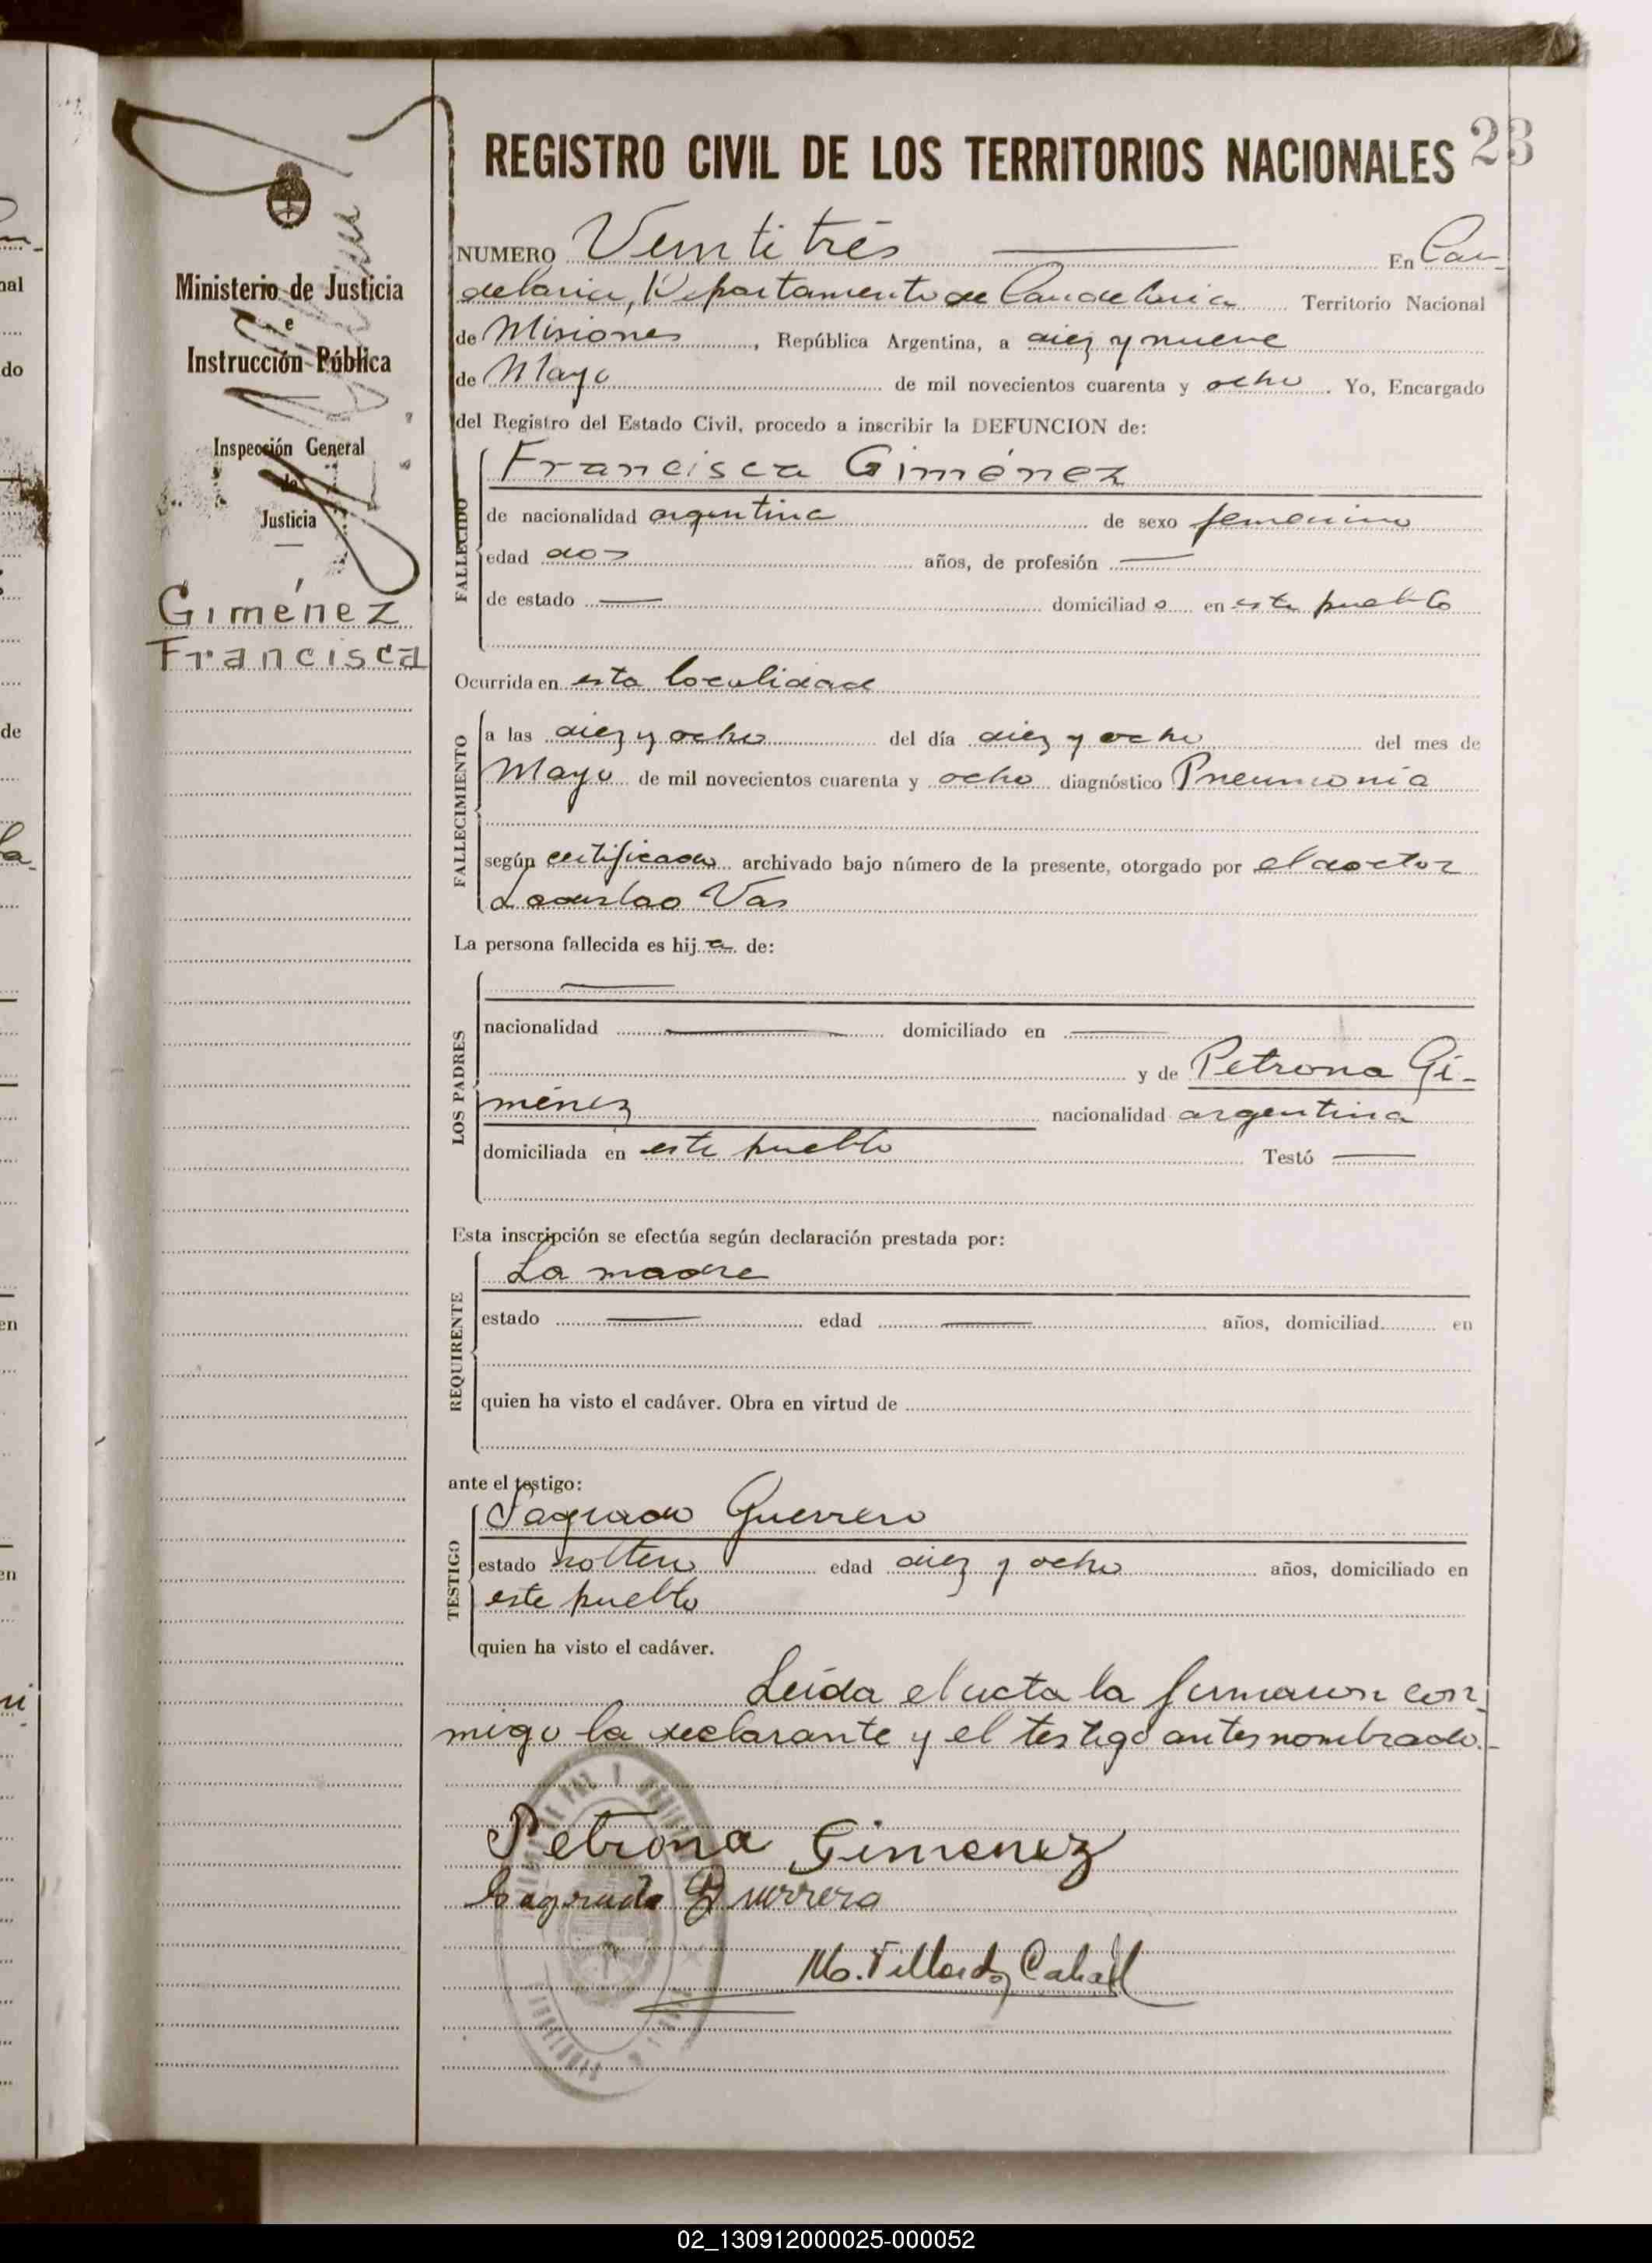 REGISTRO CIVIL DE LOS TERRITORIOS NACIONALES 23
Ministerio de Justicia
e
Instrucción Pública
Inspección General
de
Justicia
Giménez
Francisca
NUMERO Veintitrés En Can-
delaria, Departamento de Candelaria Territorio Nacional
de Misiones, República Argentina, a diez y nueve
de Mayo de mil novecientos cuarenta y ocho. Yo, Encargado
del Registro del Estado Civil, procedo a inscribir la DEFUNCION de:
FALLECIDO
Francisca Giménez
de nacionalidad argentina de sexo femenino
edad dos años, de profesión —
de estado — domiciliado en este pueblo
Ocurrida en esta localidad
FALLECIMIENTO
a las diez y ocho del día diez y ocho del mes de
Mayo de mil novecientos cuarenta y ocho diagnóstico Pneumonía
según certificado archivado bajo número de la presente, otorgado por el doctor
Ladislao Vas
La persona fallecida es hija de:
LOS PADRES
—
nacionalidad — domiciliado en —
y de Petrona Gi-
ménez nacionalidad argentina
domiciliada en este pueblo Testó —
Esta inscripción se efectúa según declaración prestada por:
REQUIRENTE
La madre
estado — edad — años, domiciliad en
quien ha visto el cadáver. Obra en virtud de
ante el testigo:
TESTIGO
Sagrado Guerrero
estado soltero edad diez y ocho años, domiciliado en
este pueblo
quien ha visto el cadáver.
Leída el acta la firmaron con-
migo la declarante y el testigo antes nombrado.
Petrona Gimenez
Sagrado Guerrero
02_130912000025-000052